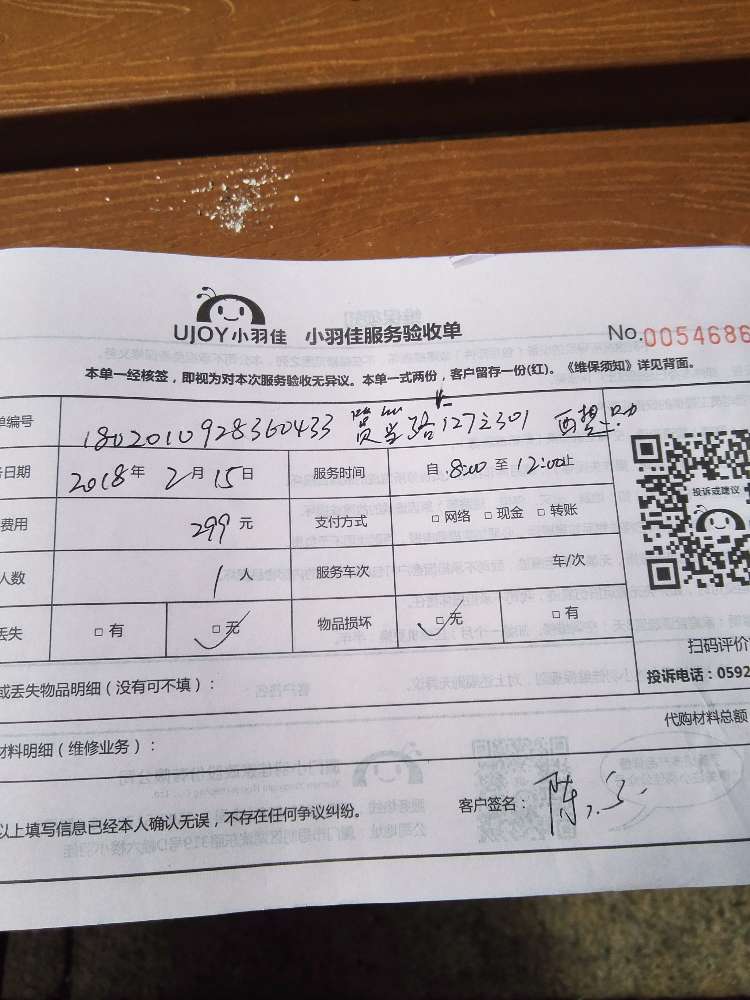 UJOY小羽佳 小羽佳服务验收单
No.0054686
本单一经核签，即视为对本次服务验收无异议。本单一式两份，客户留存一份(红)。《维保须知》详见背面。
单编号 1802010928360433 127之301
日期 2018年2月15日 服务时间 自 8:00 至 12:00止
费用 299元 支付方式 □ 网络 □ 现金 □ 转账
人数 1人 服务车次 车/次
丢失 □ 有 □ 无 物品损坏 □ 无 □ 有
投诉或建议
扫码评价
投诉电话：0592
或丢失物品明细（没有可不填）：
代购材料总额
材料明细（维修业务）：
以上填写信息已经本人确认无误，不存在任何争议纠纷。 客户签名：